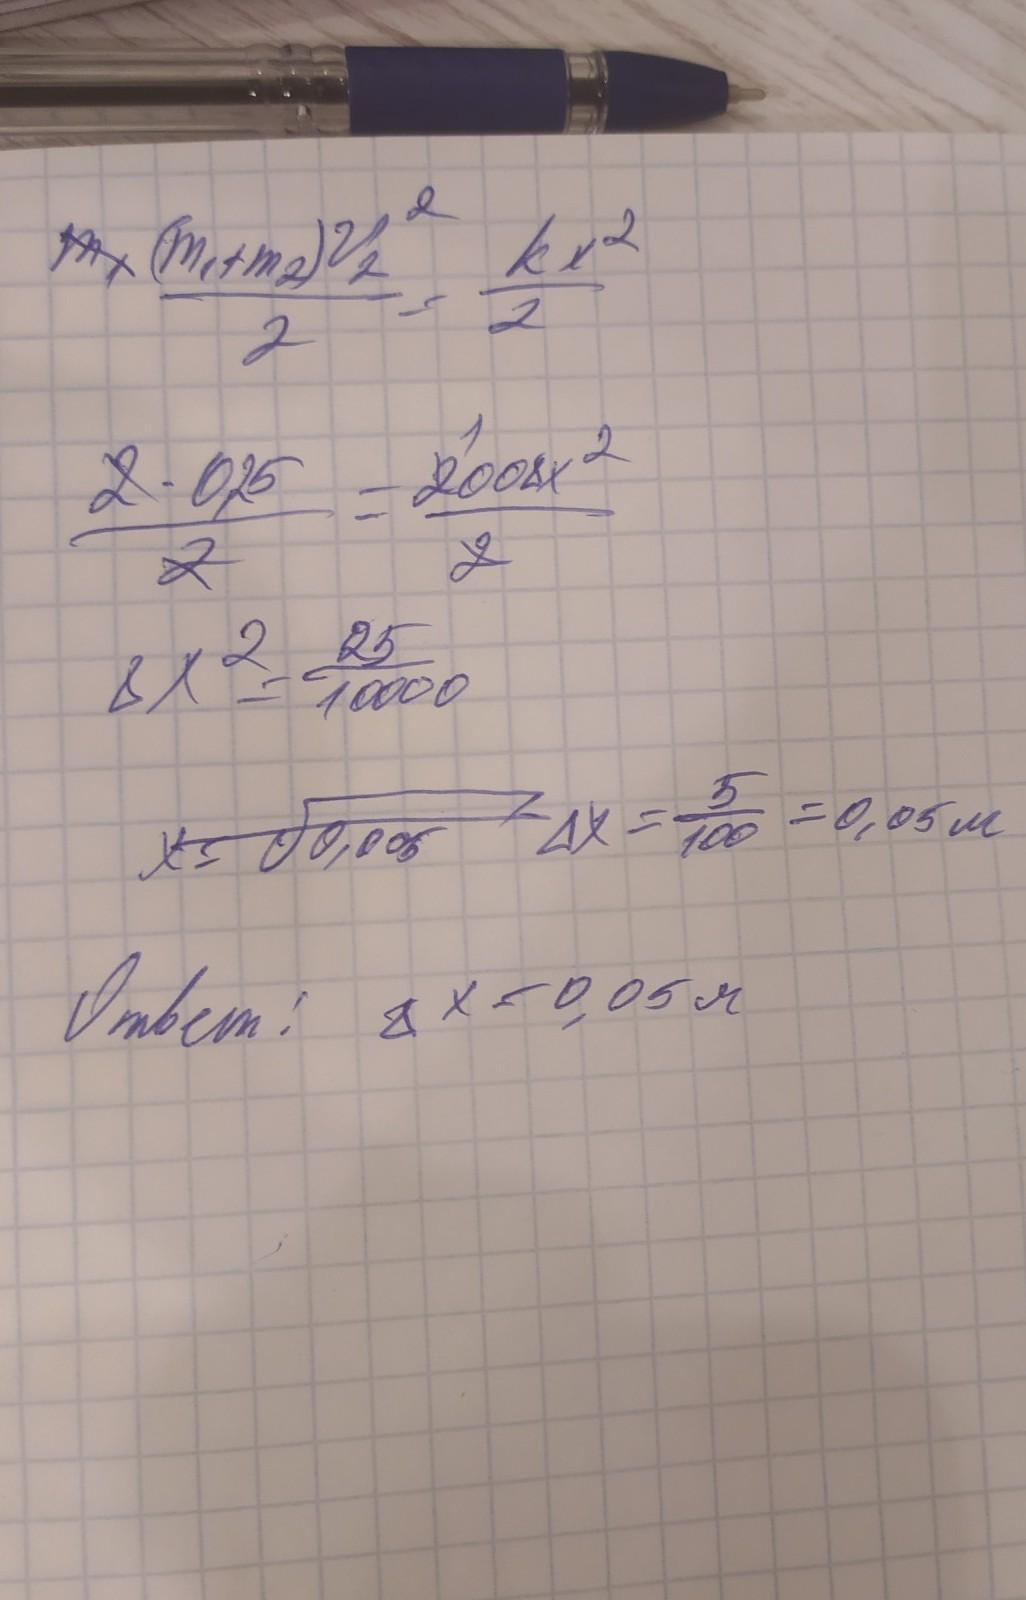 (m₁+m₂)V₂²/2 = kx²/2
2·0,25/2 = 200Δx²/2
Δx² = 25/10000
x = √0,005 Δx = 5/100 = 0,05 м
Ответ: Δx = 0,05 м